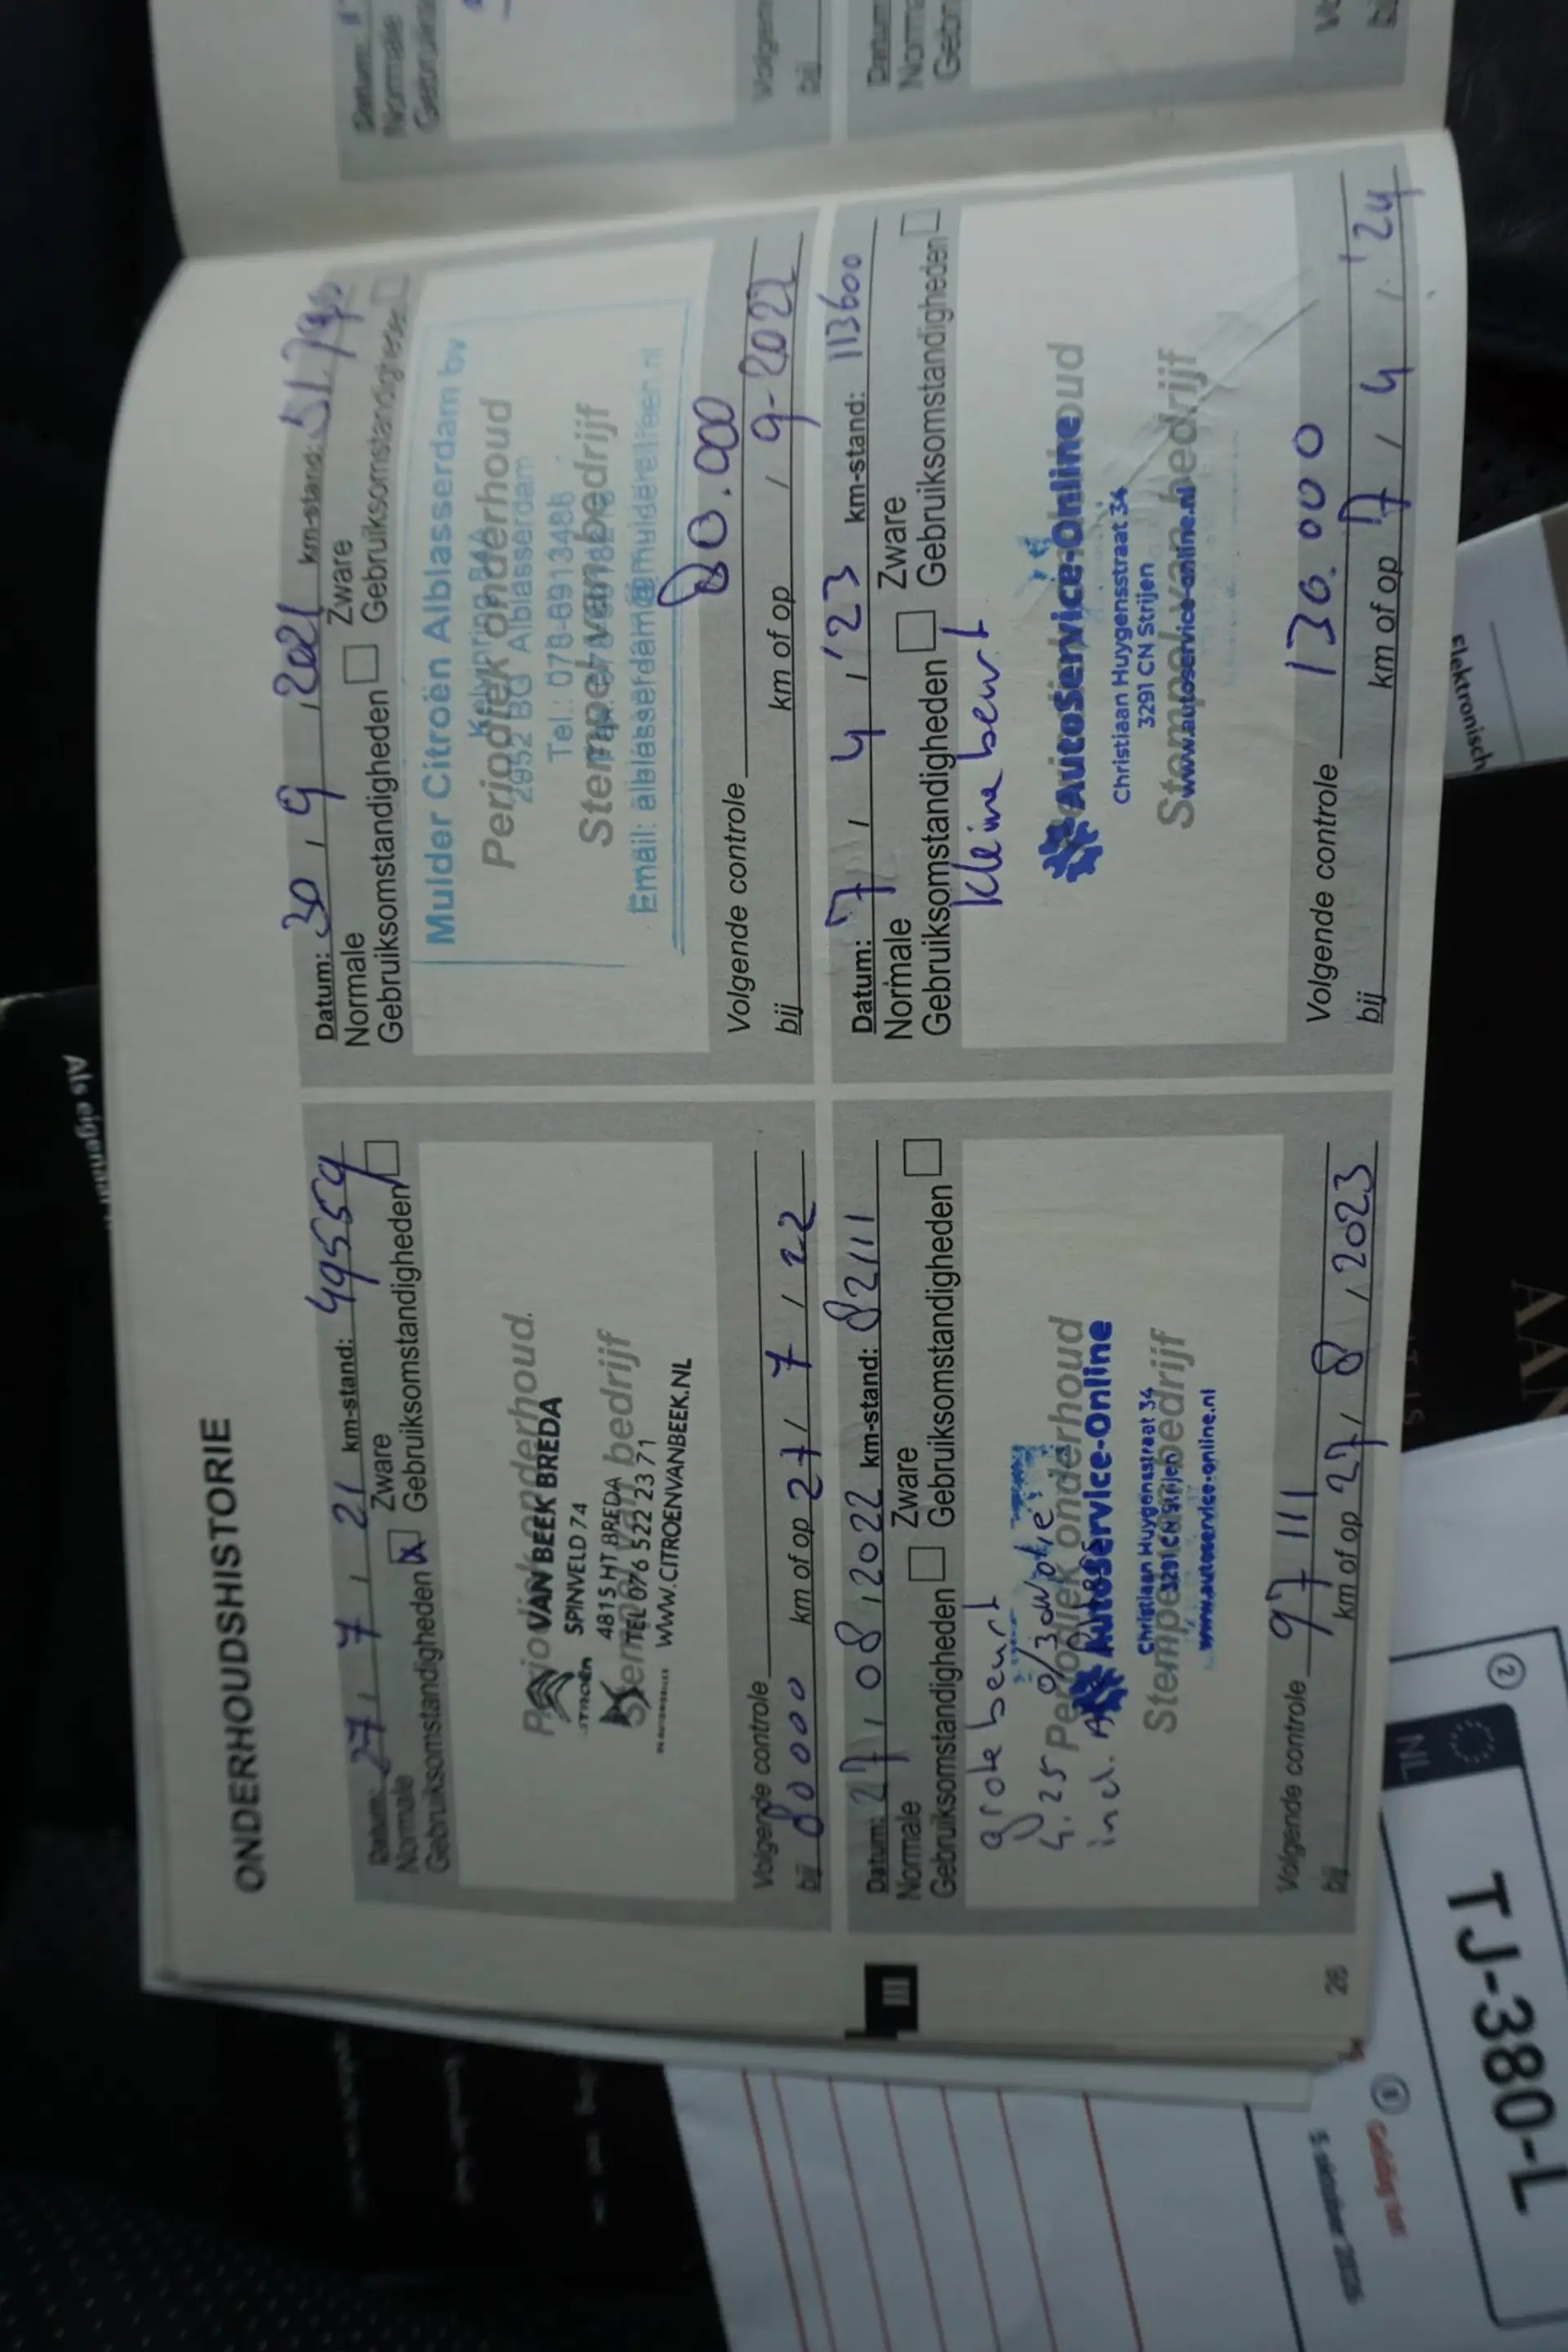 ONDERHOUDSHISTORIE
Datum: 27 / 7 / 21 km-stand: 49559
Normale Zware
Gebruiksomstandigheden x Gebruiksomstandigheden
Periodiek onderhoud
VAN BEEK BREDA
SPINVELD 74
4815 HT BREDA
Stempel van bedrijf
TEL 076 522 23 71
WWW.CITROENVANBEEK.NL
Volgende controle
bij 80000 km of op 27 / 7 / 22
Datum: 30 / 9 / 2021 km-stand:
Normale Zware
Gebruiksomstandigheden Gebruiksomstandigheden
Mulder Citroën Alblasserdam bv
Periodiek onderhoud
2952 BG Alblasserdam
Tel.: 078-6913488
Stempel van bedrijf
Email: alblasserdam@muldercitroen.nl
Volgende controle 80.000
bij km of op / 9-2022
Datum: 27 / 08 / 2022 km-stand: 82111
Normale Zware
Gebruiksomstandigheden Gebruiksomstandigheden
grote beurt
4.25 0/30
Periodiek onderhoud
incl.
AutoService-Online
Christiaan Huygensstraat 34
3291 CN Strijen
Stempel van bedrijf
www.autoservice-online.nl
Volgende controle 97111
bij km of op 27 / 8 / 2023
Datum: 7 / 4 / '23 km-stand: 113600
Normale Zware
Gebruiksomstandigheden Gebruiksomstandigheden
kleine beurt
Periodiek onderhoud
AutoService-Online
Christiaan Huygensstraat 34
3291 CN Strijen
Stempel van bedrijf
www.autoservice-online.nl
Volgende controle 130.000
bij km of op 7 / 4 / '24
III
26
Datum:
Normale
Volgende
bij
Datum:
Als eigenaar
Elektronisch
NL
TJ-380-L
2
1